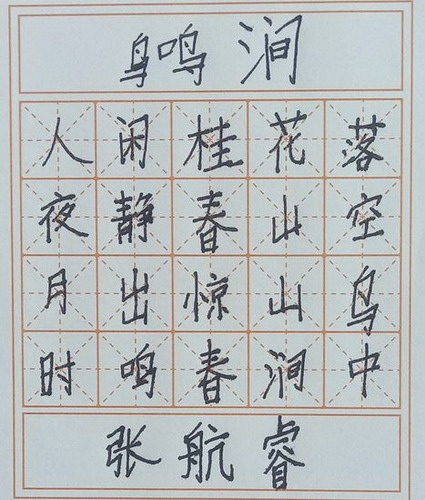 鸟鸣涧
人闲桂花落
夜静春山空
月出惊山鸟
时鸣春涧中
张航睿